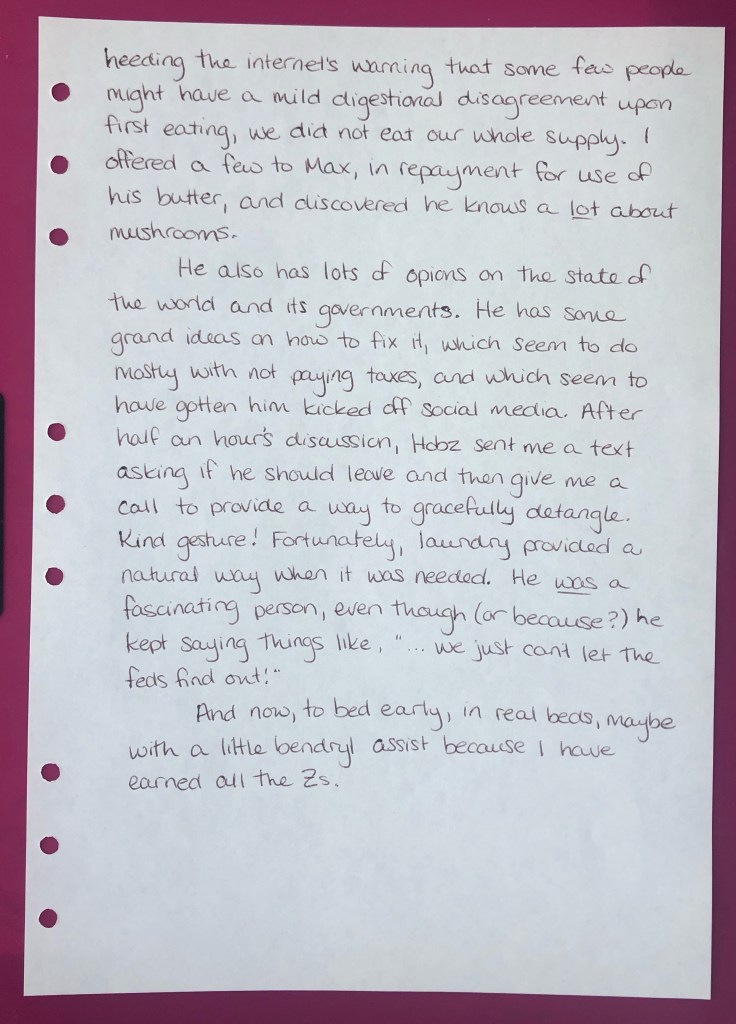 heeding the internet's warning that some few people
might have a mild digestional disagreement upon
first eating, we did not eat our whole supply. I
offered a few to Max, in repayment for use of
his butter, and discovered he knows a lot about
mushrooms.
He also has lots of opions on the state of
the world and its governments. He has some
grand ideas on how to fix it, which seem to do
mostly with not paying taxes, and which seem to
have gotten him kicked off social media. After
half an hour's discussion, Hobz sent me a text
asking if he should leave and then give me a
call to provide a way to gracefully detangle.
Kind gesture! Fortunately, laundry provided a
natural way when it was needed. He was a
fascinating person, even though (or because?) he
kept saying things like, "... we just can't let the
feds find out!"
And now, to bed early, in real beds, maybe
with a little bendryl assist because I have
earned all the Zs.